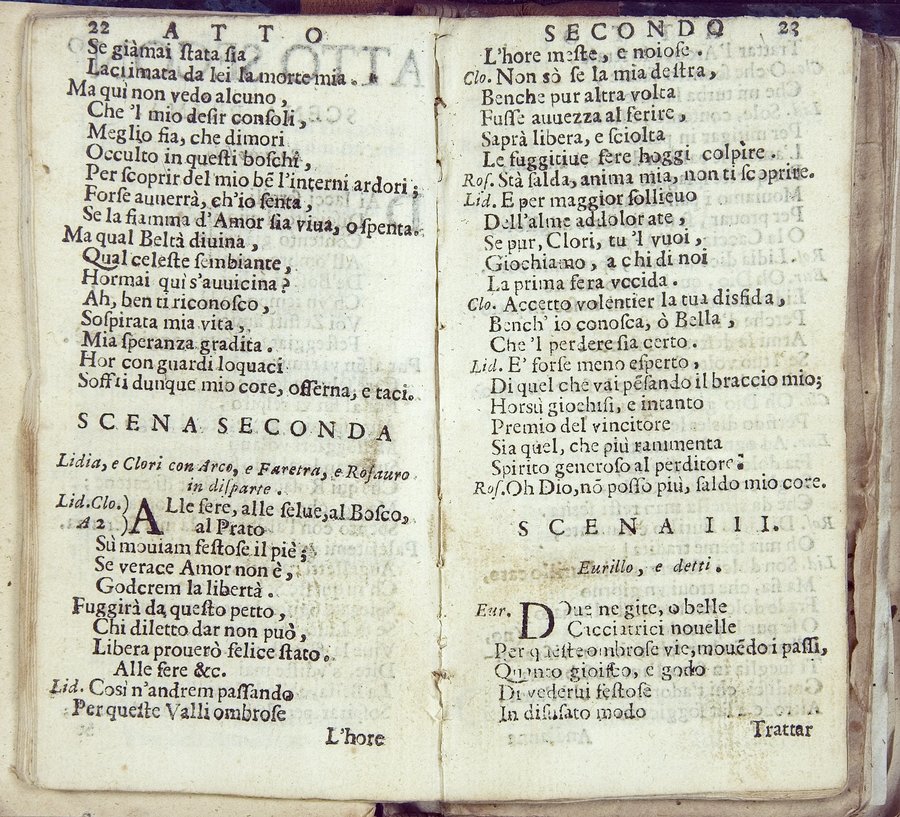 22 ATTO
Se giàmai ſtata ſia
Lacrimata da lei la morte mia.
Ma qui non vedo alcuno,
Che 'l mio deſir conſoli,
Meglio fia, che dimori
Occulto in queſti boſchi,
Per ſcoprir del mio bẽ l'interni ardori;
Forſe auuerrà, ch'io ſenta,
Se la fiamma d'Amor ſia viua, o ſpenta.
Ma qual Beltà diuina,
Qual celeſte ſembiante,
Hormai quì s'auuicina?
Ah, ben ti riconoſco,
Soſpirata mia vita,
Mia ſperanza gradita.
Hor con guardi loquaci
Soffri dunque mio core, oſſerna, e taci.
SCENA SECONDA
Lidia, e Clori con Arco, e Faretra, e Roſauro
in diſparte.
Lid. Clo.) ALle fere, alle ſelue, al Boſco,
A 2 ) al Prato
Sù mouiam feſtoſe il piè;
Se verace Amor non è,
Godcrem la libertà.
Fuggirà da queſto petto,
Chi diletto dar non può,
Libera prouerò felice ſtato.
Alle fere &c.
Lid. Cosi n'andrem paſſando
Per queſte Valli ombroſe
L'hore
SECONDO 23
L'hore meſte, e noioſe.
Clo. Non sò ſe la mia deſtra,
Benche pur altra volta
Fuſſe auuezza al ferire,
Saprà libera, e ſciolta
Le fuggitiue fere hoggi colpire.
Roſ. Stà ſalda, anima mia, non ti ſcoprire.
Lid. E per maggior ſollieuo
Dell'alme addolorate,
Se pur, Clori, tu 'l vuoi,
Giochiamo, a chi di noi
La prima fera vccida.
Clo. Accetto volentier la tua disfida,
Bench' io conoſca, ò Bella,
Che 'l perdere ſia certo.
Lid. E' forſe meno eſperto,
Di quel che vai pẽſando il braccio mio;
Horsù giochiſi, e intanto
Premio del vincitore
Sia quel, che più rammenta
Spirito generoſo al perditore:
Roſ. Oh Dio, nõ poſſo più, ſaldo mio core.
SCENA III.
Eurillo, e detti.
Eur. DOue ne gite, o belle
Cacciatrici nouelle
Per queſte ombroſe vie, mouẽdo i paſſi,
Quanto gioiſco, e godo
Di vederui feſtoſe
In diſuſato modo
Trattar